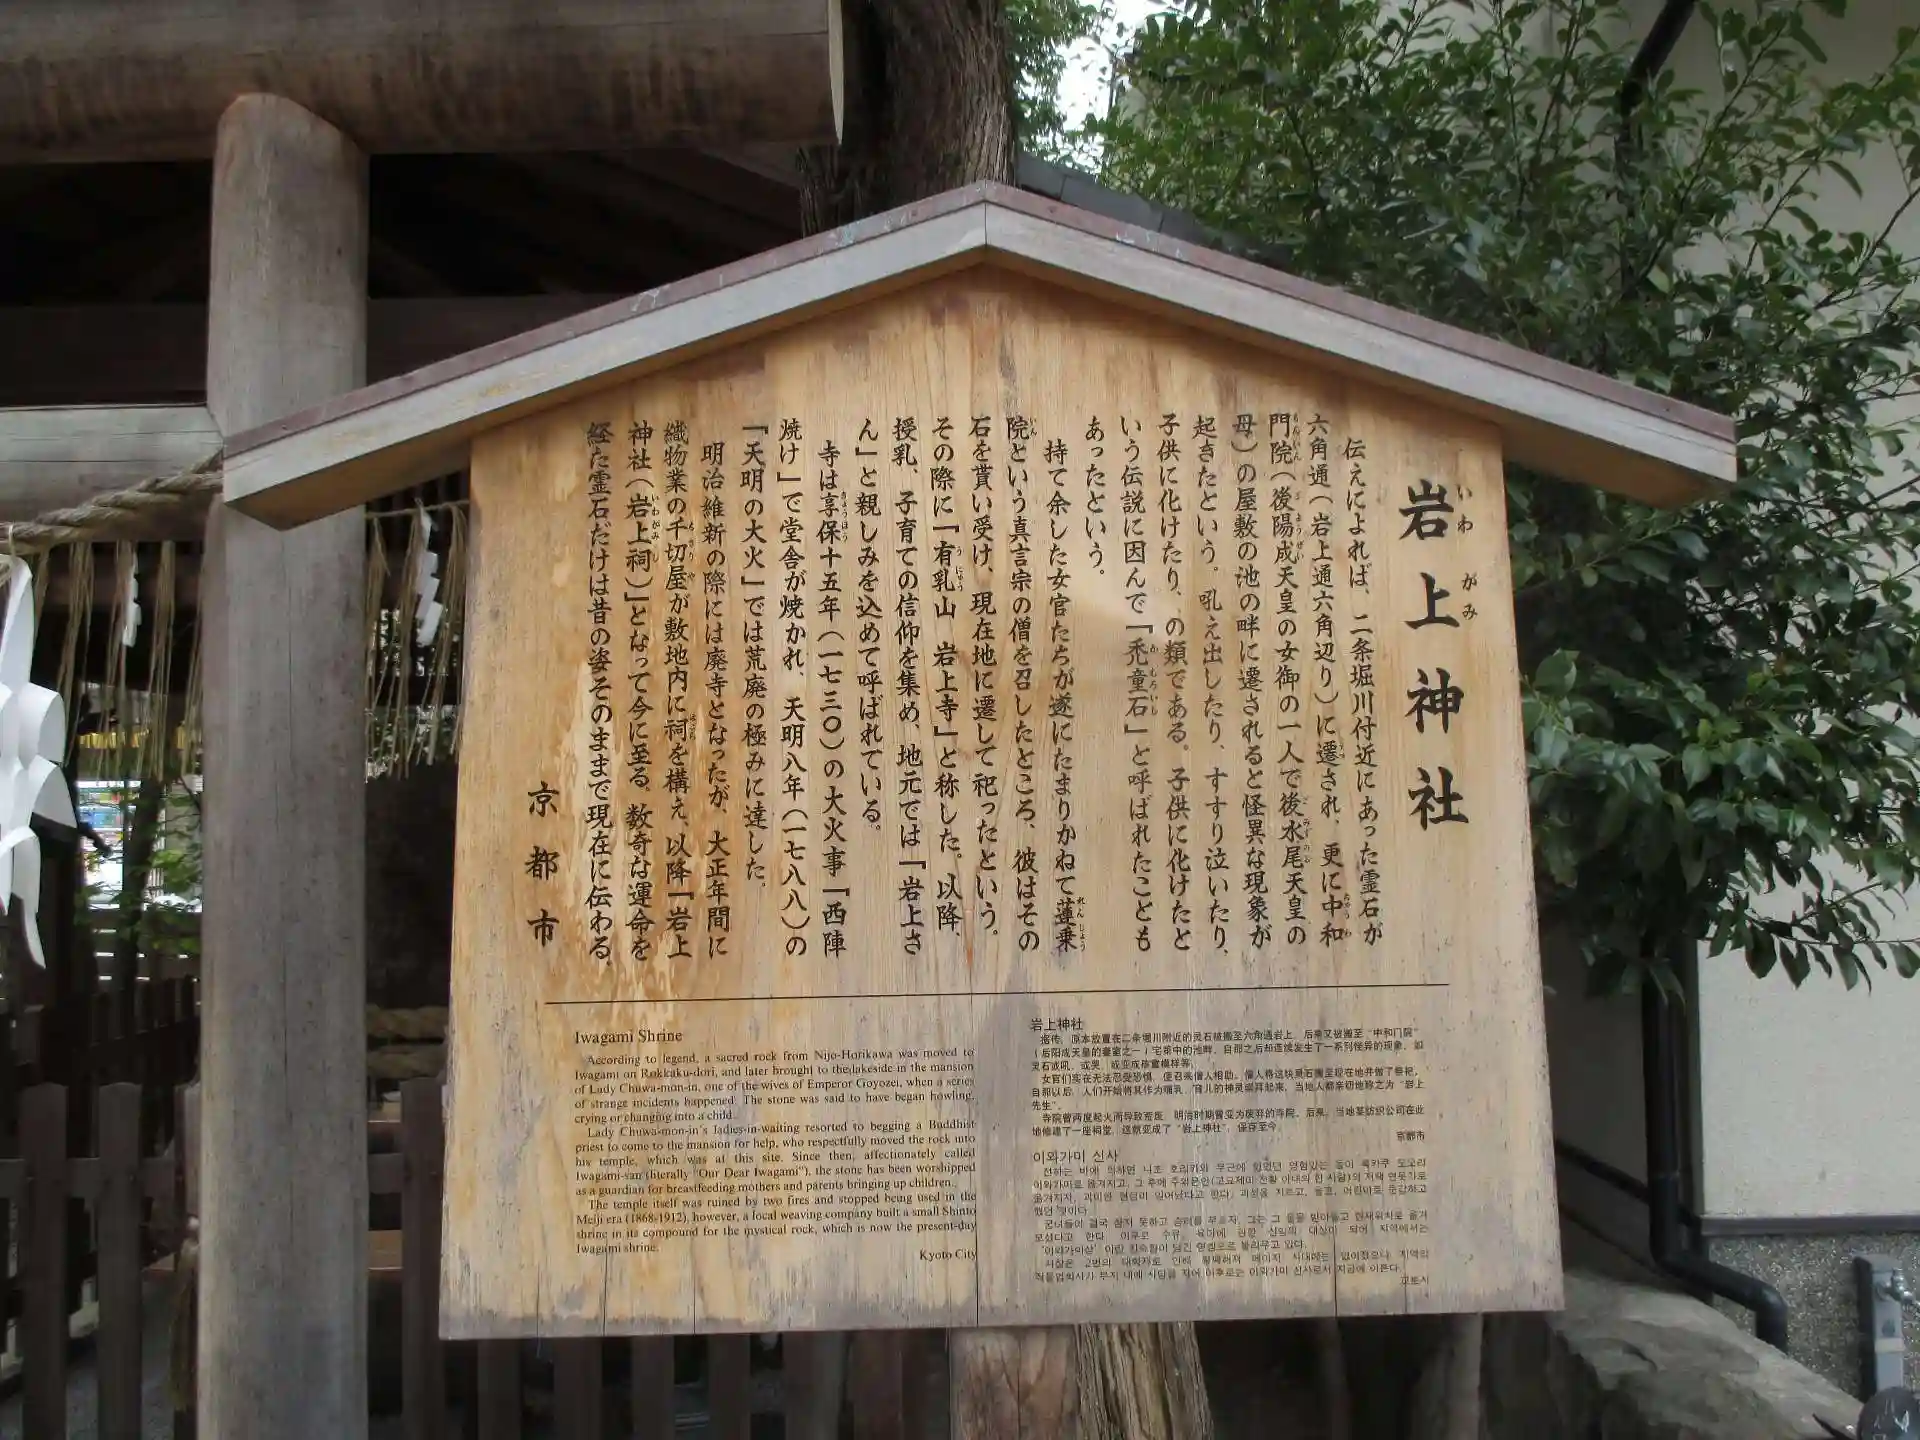 岩上神社
いわ がみ
伝えによれば、二条堀川付近にあった霊石が
六角通（岩上通六角辺り）に遷され、更に中和
門院（後陽成天皇の女御の一人で後水尾天皇の
母）の屋敷の池の畔に遷されると怪異な現象が
起きたという。吼え出したり、すすり泣いたり、
子供に化けたり、の類である。子供に化けたと
いう伝説に因んで「禿童石」と呼ばれたことも
あったという。
持て余した女官たちが遂にたまりかねて蓮乗
院という真言宗の僧を召したところ、彼はその
石を貰い受け、現在地に遷して祀ったという。
その際に「有乳山 岩上寺」と称した。以降、
授乳、子育ての信仰を集め、地元では「岩上さ
ん」と親しみを込めて呼ばれている。
寺は享保十五年（一七三〇）の大火事「西陣
焼け」で堂舎が焼かれ、天明八年（一七八八）の
「天明の大火」では荒廃の極みに達した。
明治維新の際には廃寺となったが、大正年間に
織物業の千切屋が敷地内に祠を構え、以降「岩上
神社（岩上祠）」となって今に至る。数奇な運命を
経た霊石だけは昔の姿そのままで現在に伝わる。
京都市
Iwagami Shrine
According to legend, a sacred rock from Nijo-Horikawa was moved to
Iwagami on Rokkaku-dori, and later brought to the lakeside in the mansion
of Lady Chuwa-mon-in, one of the wives of Emperor Goyozei, when a series
of strange incidents happened. The stone was said to have began howling,
crying or changing into a child.
Lady Chuwa-mon-in's ladies-in-waiting resorted to begging a Buddhist
priest to come to the mansion for help, who respectfully moved the rock into
his temple, which was at this site. Since then, affectionately called
Iwagami-san (literally "Our Dear Iwagami"), the stone has been worshipped
as a guardian for breastfeeding mothers and parents bringing up children.
The temple itself was ruined by two fires and stopped being used in the
Meiji era (1868-1912), however, a local weaving company built a small Shinto
shrine in its compound for the mystical rock, which is now the present-day
Iwagami shrine.
Kyoto City
岩上神社
据传，原本放置在二条堀川附近的灵石被搬至六角通岩上，后来又被搬至“中和门院”
（后阳成天皇的妻室之一）宅第中的池畔，自那之后却连续发生了一系列怪异的现象，如
灵石或吼、或哭、或变成孩童模样等。
女官们实在无法忍受恐惧，便召来僧人相助。僧人将这块灵石搬至现在地并做了祭祀，
自那以后，人们开始将其作为哺乳、育儿的神灵崇拜起来，当地人都亲切地称之为“岩上
先生”。
寺院曾两度起火而导致荒废，明治时期曾变为废弃的寺院。后来，当地某纺织公司在此
地修建了一座祠堂，这就变成了“岩上神社”，保存至今。
京都市
이와가미 신사
전하는 바에 의하면 니조 호리카와 부근에 있었던 영험있는 돌이 록카쿠 도오리
교토시